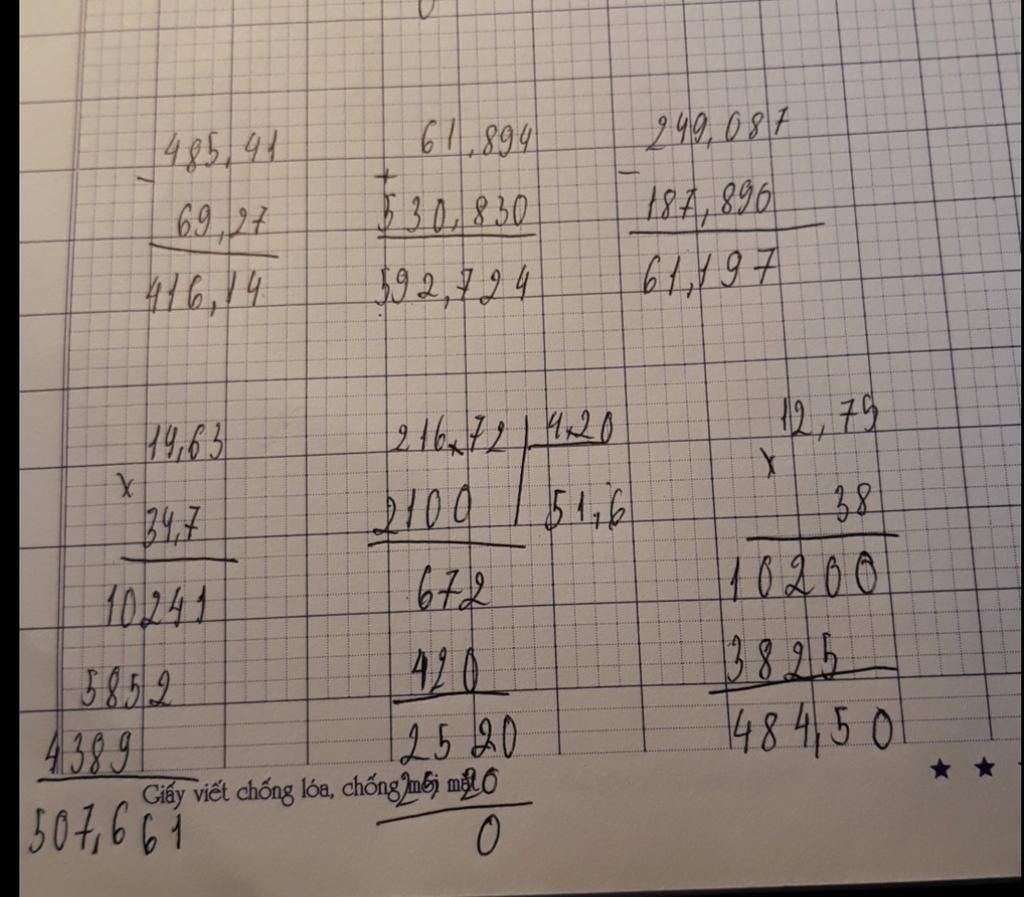 485,41
-
69,27
416,14
61,894
+
530,830
592,724
249,087
-
187,890
61,197
14,63
x
34,7
10241
5852
4389
507,661
216,72 4,20
2100 51,6
672
420
2520
2520
0
12,75
x
38
10200
3825
484,50
Giấy viết chống lóa, chống mỏi mắt